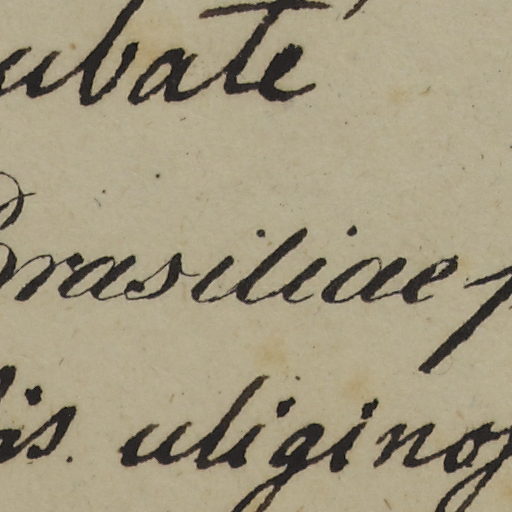 ubaté
Brasiliae p
is uliginos